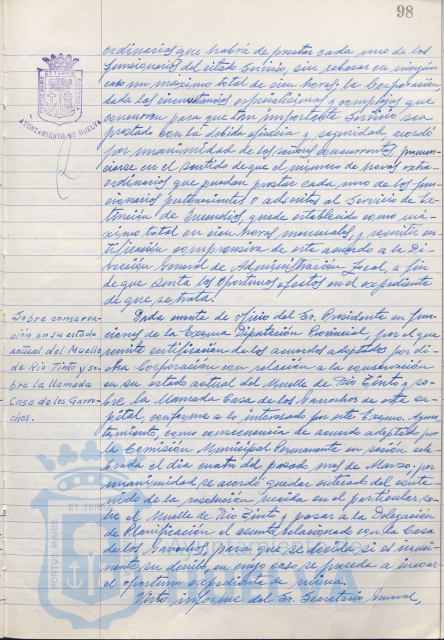 98
ordinarios que habrá de prestar cada uno de los
funcionarios del citado Servicio, sin rebasar en ningún
caso un máximo total de cien horas, la Corporación,
dada las circunstancias especialísimas y complejas que
concurren para que tan importante Servicio sea
prestado con la debida eficacia y seguridad, acordó
por unanimidad de los señores concurrentes, pronun-
ciarse en el sentido de que el número de horas extra-
ordinarias que puedan prestar cada uno de los fun-
cionarios pertenecientes o adscritos al Servicio de Ex-
tinción de Incendios, quede establecido como má-
ximo total en cien horas mensuales, y remitir cer-
tificación comprensiva de este acuerdo a la Di-
rección General de Administración Local, a fin
de que surta los oportunos efectos en el expediente
de que se trata.
AYUNTAMIENTO DE HUELVA
Sobre conserva-
ción en su estado
actual del Muelle
de Rio Tinto y so-
bre la llamada
Casa de los Garro-
chos.
Dada cuenta de oficio del Sr. Presidente en fun-
ciones de la Excma Diputación Provincial, por el que
remite certificación de los acuerdos adoptados por di-
cha Corporación con relación a la conservación
en su estado actual del Muelle de Rio Tinto y so-
bre la llamada Casa de los Garrochos de esta ca-
pital, conforme a lo interesado por este Excmo. Ayun-
tamiento, como consecuencia de acuerdo adoptado por
la Comisión Municipal Permanente en sesión cele-
brada el día cuatro del pasado mes de Marzo, por
unanimidad se acordó quedar enterado del conte-
nido de la resolución recaida en el particular so-
bre el Muelle de Rio Tinto y pasar a la Delegación
de Planificación el asunto relacionado con la Casa
de los Garrochos, para que se decida si es inmi-
nente su derribo, en cuyo caso se proceda a incoar
el oportuno expediente de ruina.
Visto informe del Sr. Secretario General,
PORTUS MARIS
ET TERRAE